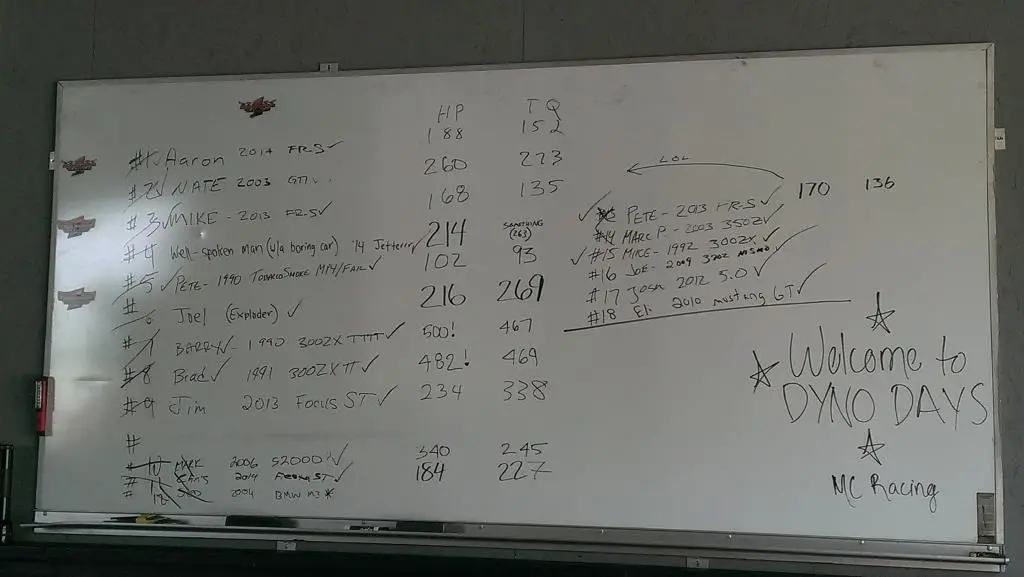 HP TQ
#1 Aaron 2014 FR-S ✓ 188 152
#2 NATE 2003 GTI 260 273
#3 MIKE - 2013 FR-S ✓ 168 135
#4 Well-spoken man (w/a boring car) '14 Jetterrr ✓ 214 SOMETHING (263)
#5 PETE - 1990 TOBACCOSMOKE MPV/FAIL ✓ 102 93
# Joel (Exploder) ✓ 216 269
#7 BARRY ✓ - 1990 300ZX TTTT ✓ 500! 467
#8 Brad ✓ 1991 300ZX TT ✓ 482! 469
#9 Jim 2013 Focus ST ✓ 234 338
#
10 MARK 2006 S2000 ✓ 340 245
# 11 Chris 2014 Fiesta ST ✓ 184 227
# 12 2004 BMW M3 *
LOL
✓ PETE - 2013 FR-S ✓ 170 136
#14 MARC P. - 2003 350Z ✓
✓ #15 MIKE - 1992 300ZX ✓
#16 JOE - 2009 370Z NISMO ✓
#17 Josh 2012 5.0 ✓
#18 Eli 2010 mustang GT ✓
Welcome to
DYNO DAYS
MC Racing